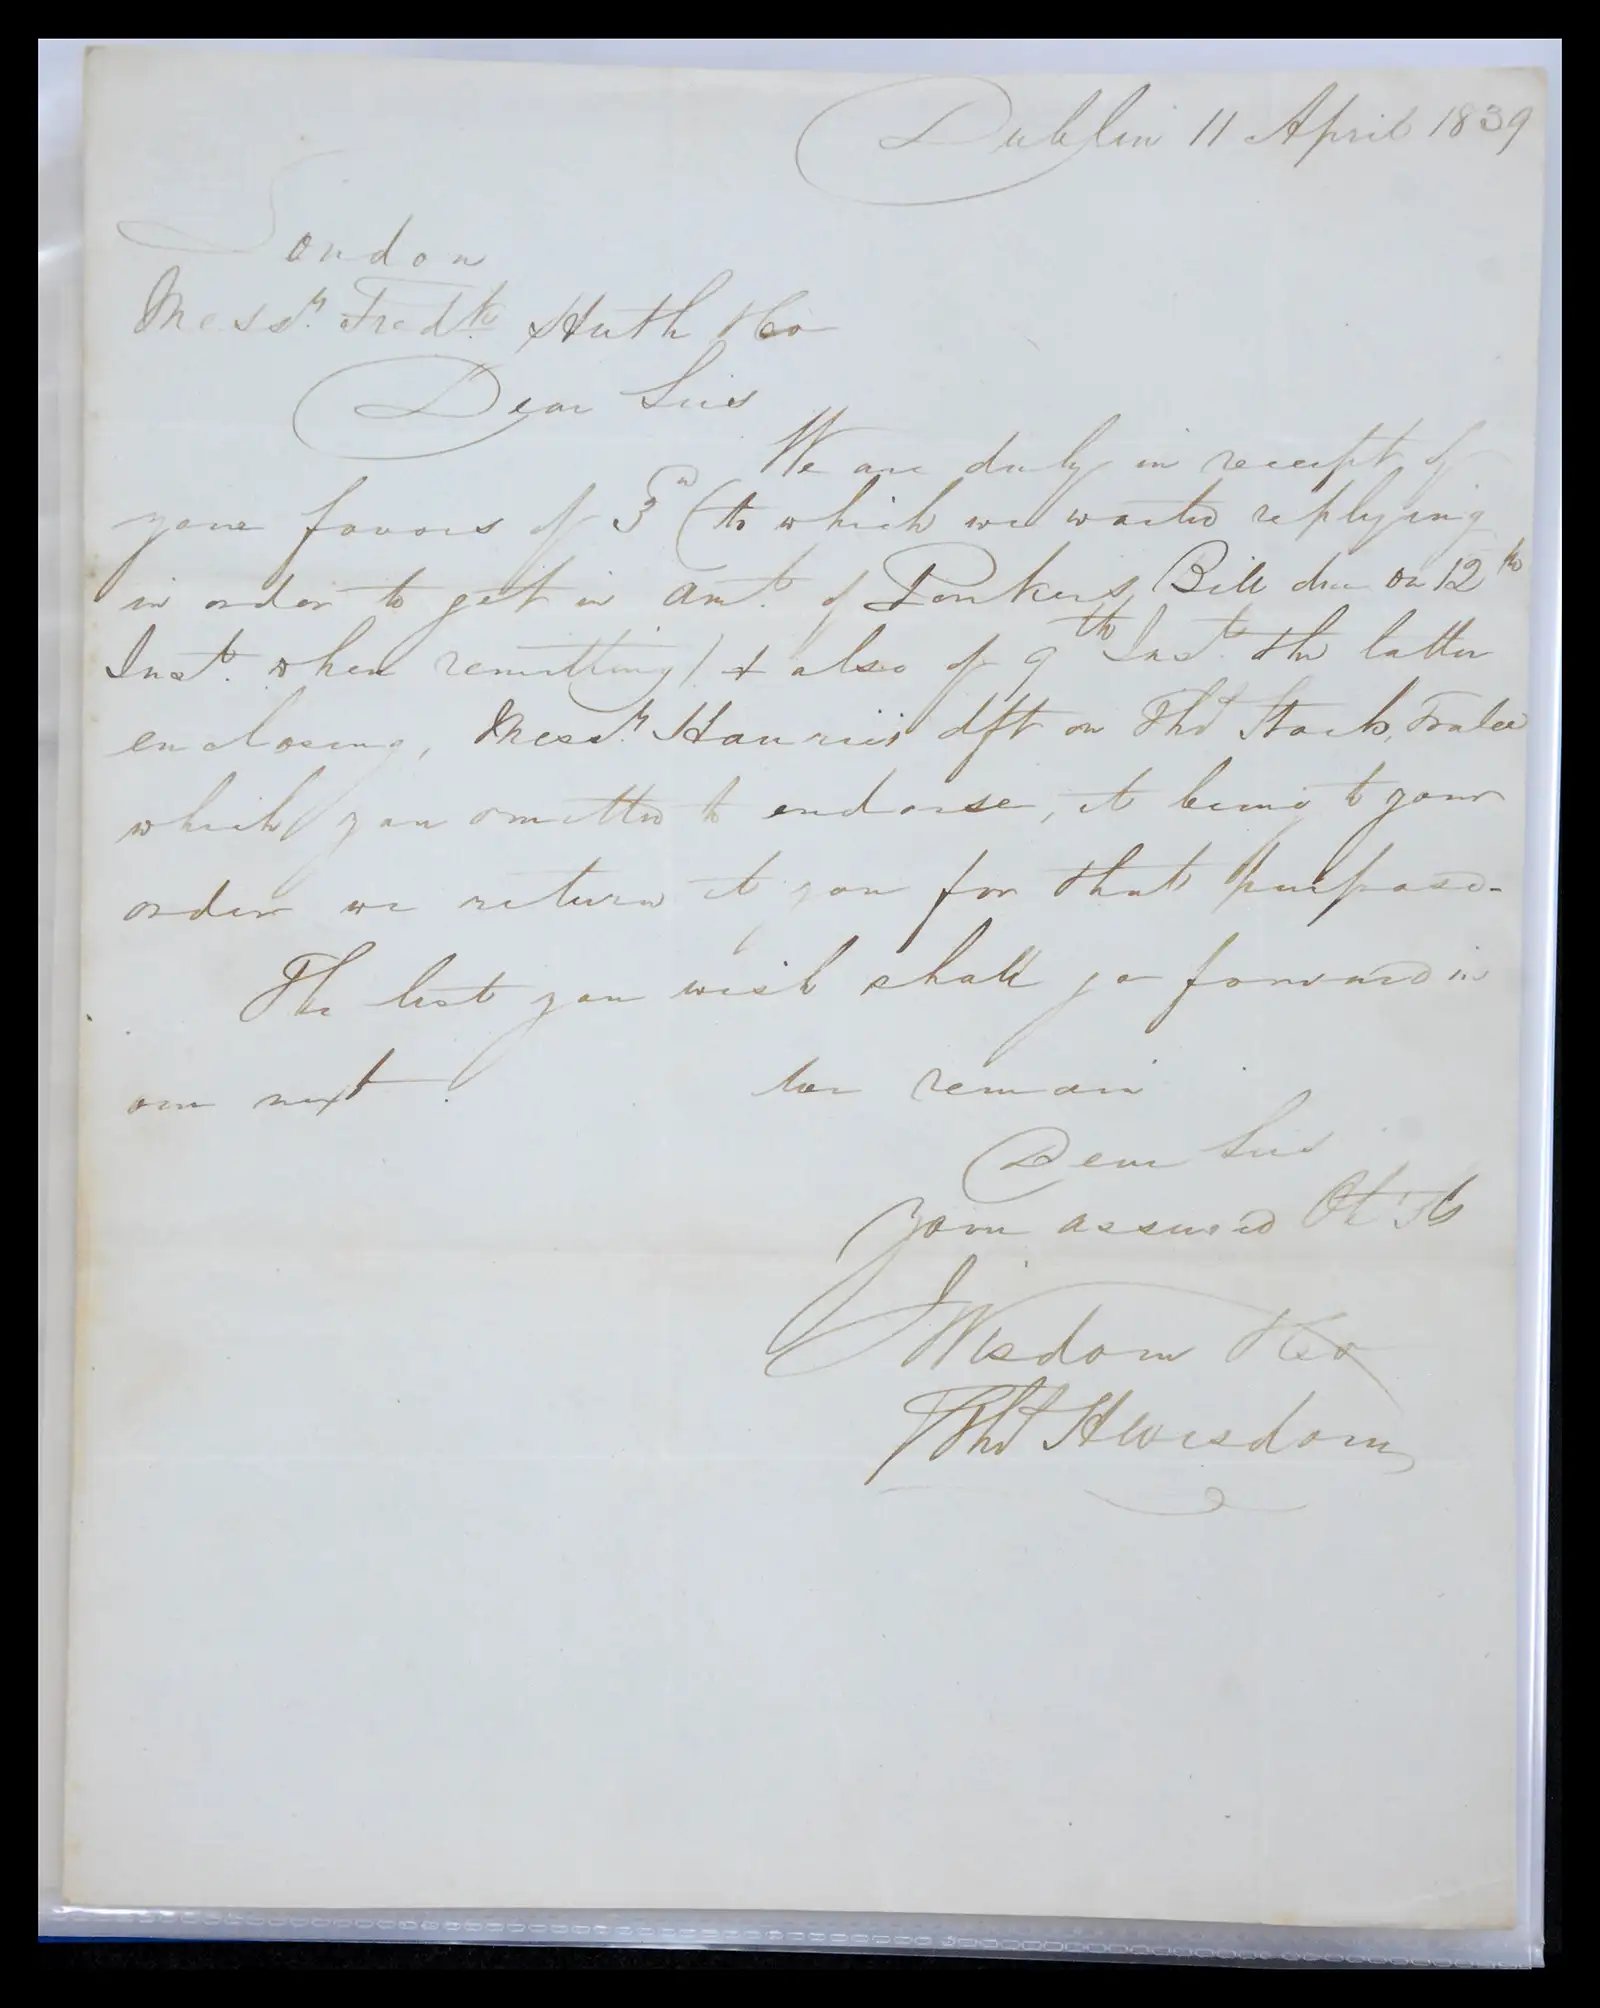 Dublin 11 April 1839
London
Messrs. Fredk. Huth & Co
Dear Sirs
We are duly in receipt of
your favors of 3rd (to which we waited replying
in order to get in amt. of Bill due on 12th
Inst. when remitting) & also of 9th Inst. the latter
enclosing, Messrs. Harris dft on Thos Stack, Tralee
which you omitted to endorse, it being to your
order we return it you for that purpose -
The list you wish shall go forward in
our next.
We remain
Dear Sirs
Your assured
J Wisdom & Co
Thos H Wisdom